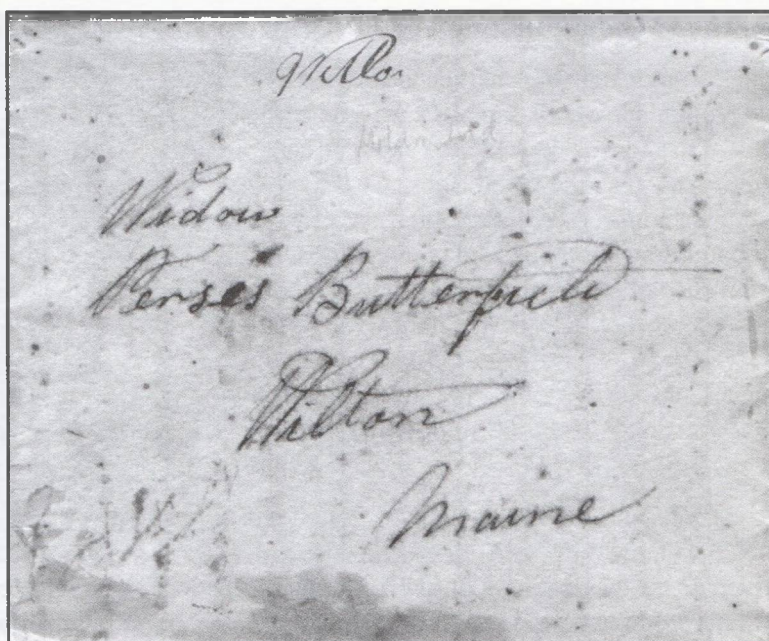 Widow
Perses Butterfield
Wilton
Maine